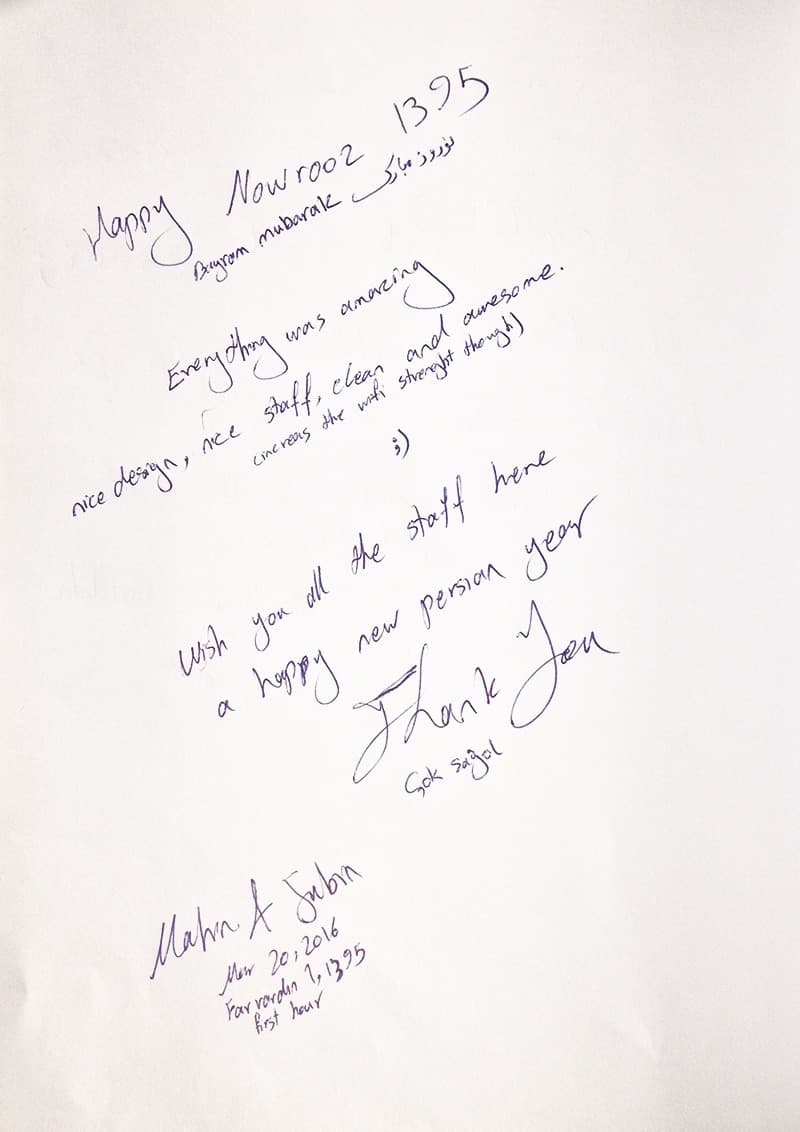 Happy Nowrooz 1395
Bayram mubarak نوروز مبارک
Everything was amazing
nice design, nice staff, clean and awesome.
(increas the wifi strenght though)
;)
Wish you all the staff here
a happy new persian year
Thank You
Çok sağol
Mar 20, 2016
Farvardin 1, 1395
first hour